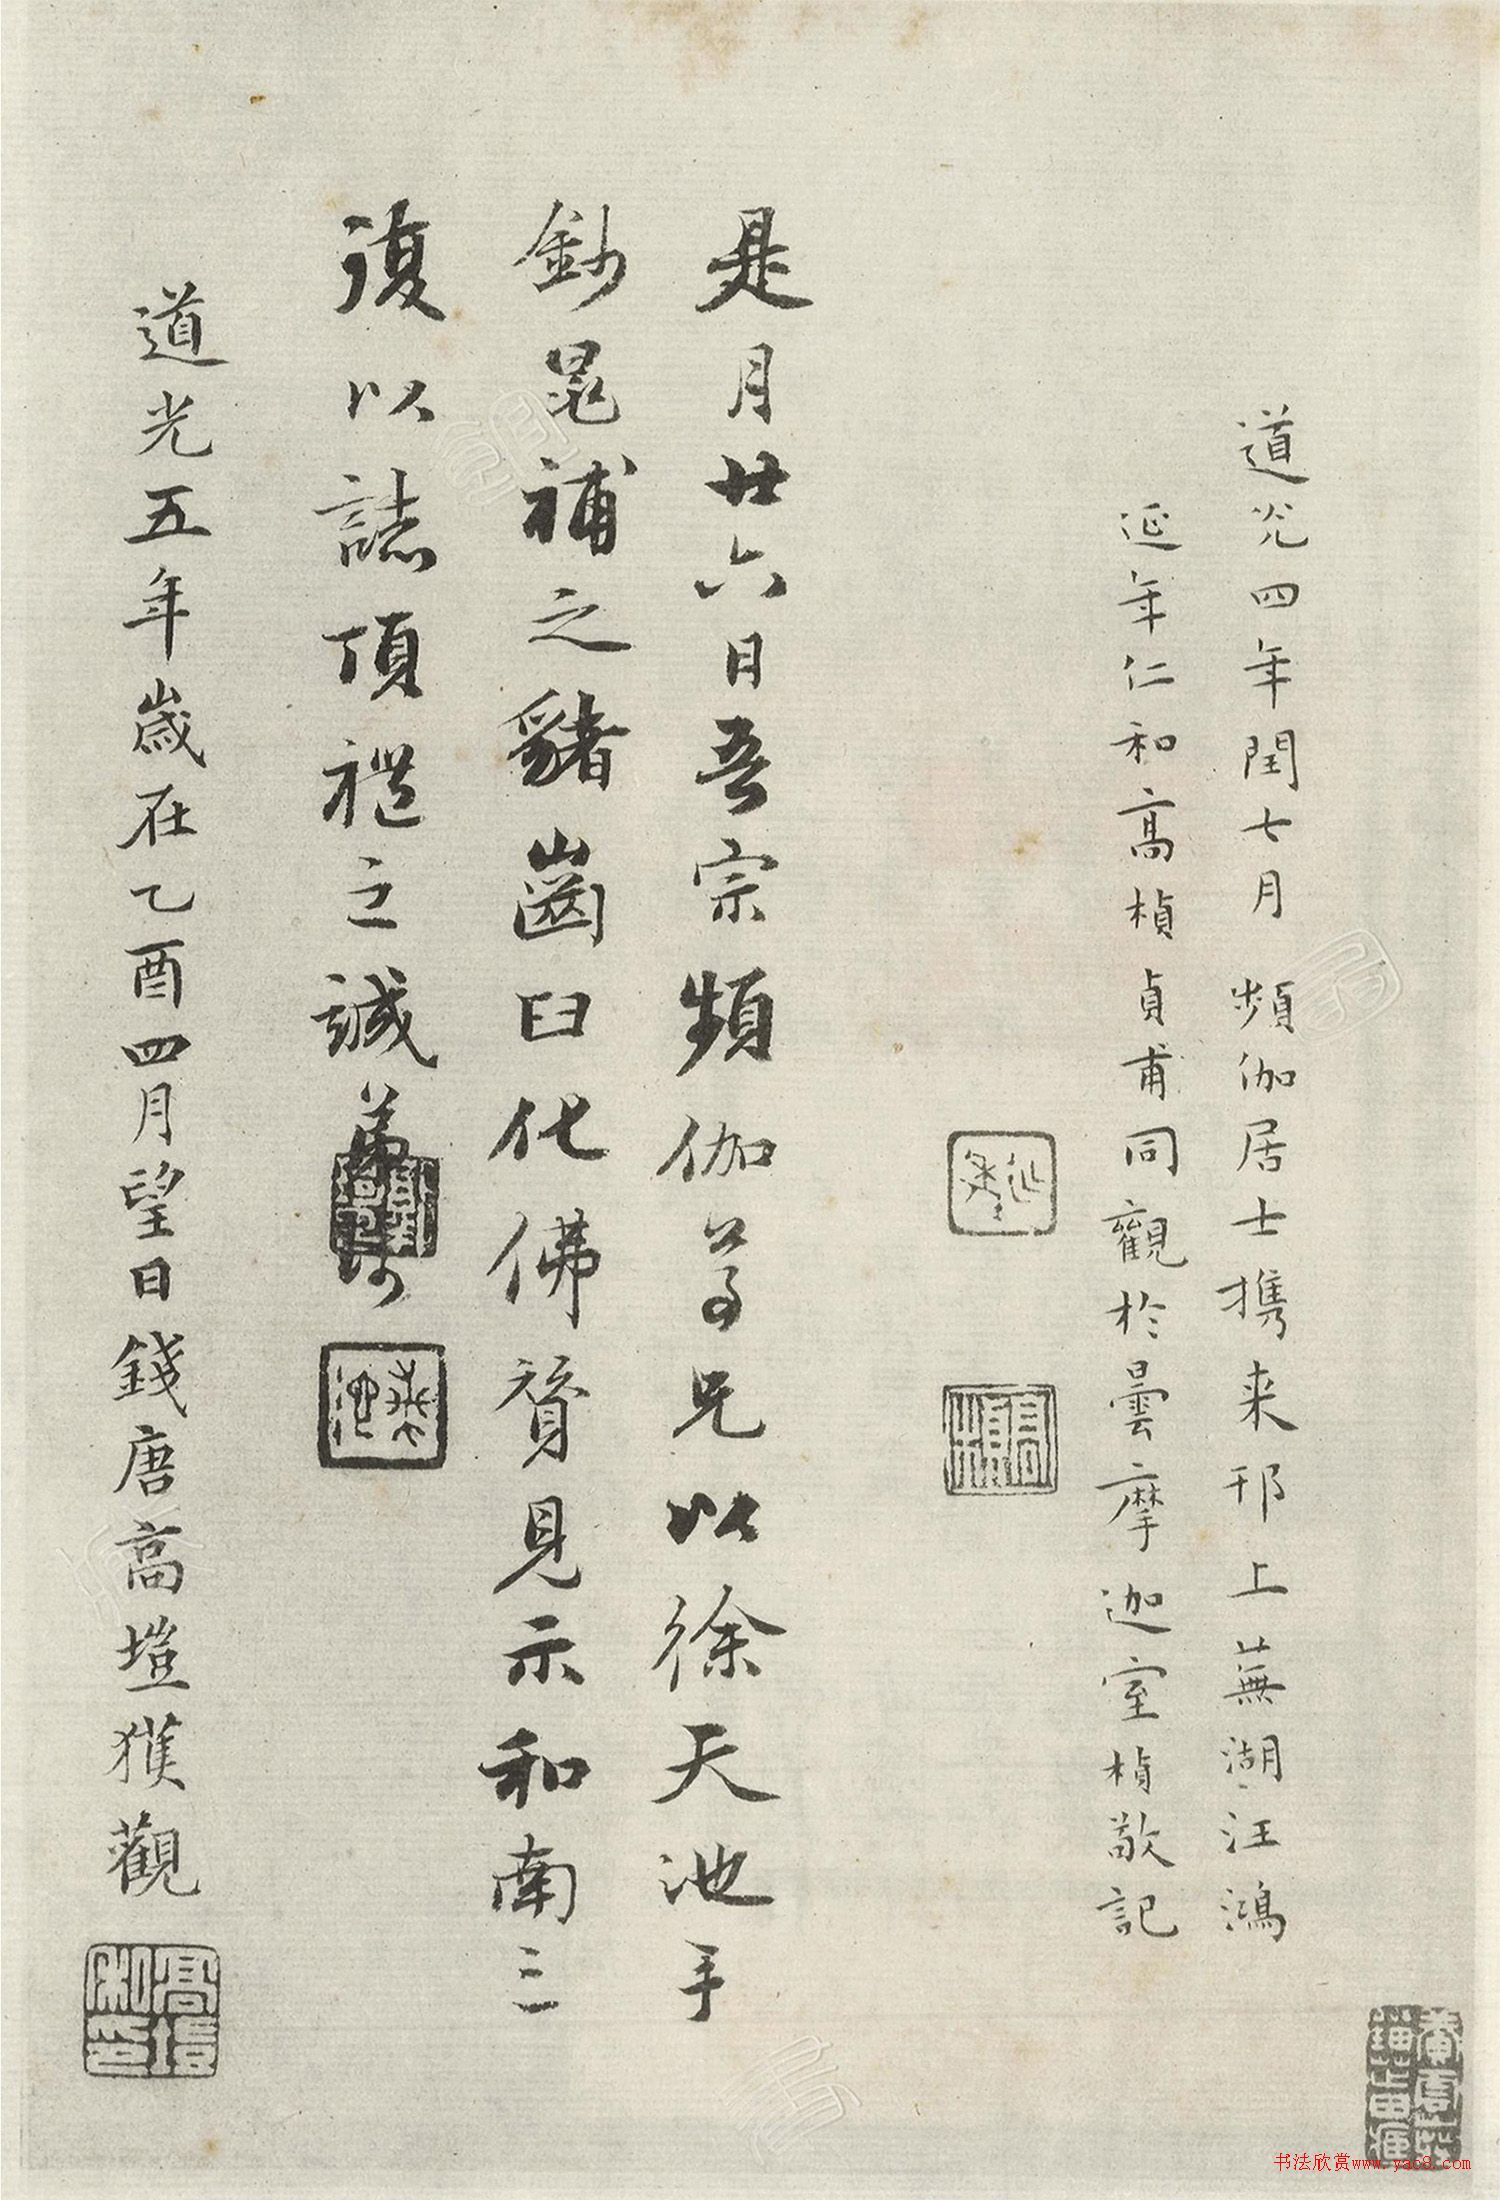 道光四年閏七月 頻伽居士携来邗上蕪湖汪鴻
延年仁和高楨貞甫同觀於曇摩迦室楨敬記
延年
高楨
是月廿六日吾宗頻伽尊兄以徐天池手
鈔晁補之豬齒臼化佛贊見示和南三
復以誌頂禮之誠
道光五年歲在乙酉四月望日錢唐高塏獲觀
高塏
私印
书法欣赏www.yac8.com